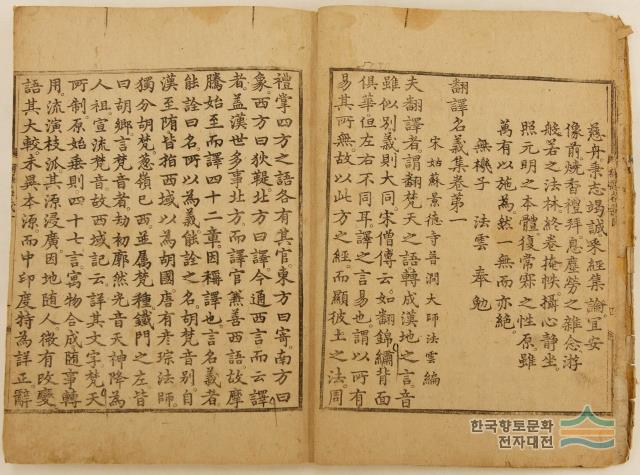 慈舟秉志竭誠采經集論宜安
像前燒香禮拜息塵勞之雜念游
般若之法林終卷掩帙攝心靜坐
照元明之本體復常寂之性原雖
萬有以施為然一無而亦絕。
無機子 法雲 奉勉
翻譯名義集卷第一
宋姑蘇景德寺普潤大師法雲編
夫翻譯者謂翻梵天之語轉成漢地之言音
雖似別義則大同宋僧傳云如翻錦繡背面
俱華但左右不同耳。譯之言易也。謂以所有
易其所無。故以此方之經而顯彼土之法。周
禮掌四方之語各有其官東方曰寄。南方曰
象。西方曰狄鞮。北方曰譯。今通西言而云譯
者。蓋漢世多事北方而譯官兼善西語故摩
騰始至而譯四十二章因稱譯也言名義者
能詮曰名所以為義能詮之名胡梵音別自
漢至隋皆指西域以為胡國。唐有彥琮法師。
獨分胡梵葱嶺已西並屬梵種鐵門之左皆
曰胡鄉。言梵音者劫初廓然光音天神降為
人祖宣流梵音故西域記云詳其文字梵天
所制原始垂則四十七言寓物合成隨事轉
用。流演枝派。其源浸廣。因地隨人。微有改變
語其大較。未異本源。而中印度特為詳正。辭
한국향토문화
전자대전